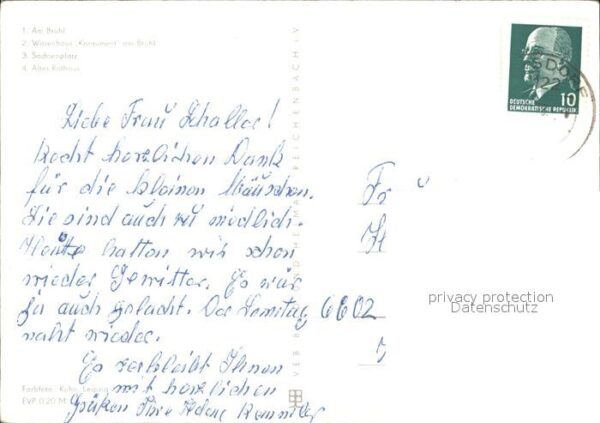 1. Am Brühl
2. Warenhaus "Konsument" am Brühl
3. Sachsenplatz
4. Altes Rathaus
DEUTSCHE DEMOKRATISCHE REPUBLIK 10
Liebe Frau Schaller!
Recht herzlichen Dank
für die kleinen Mäuschen.
Sie sind auch zu niedlich.
Heute hatten wir schon
wieder Gewitter. Es war
ja auch gelacht. Der Samstag
naht wieder.
Es verbleibt Ihnen
mit herzlichen
Grüßen Ihre
Fr
H
6602
privacy protection
Datenschutz
Farbfoto: Kühn, Leipzig
EVP 0.20 M
REICHENBACH i. V.